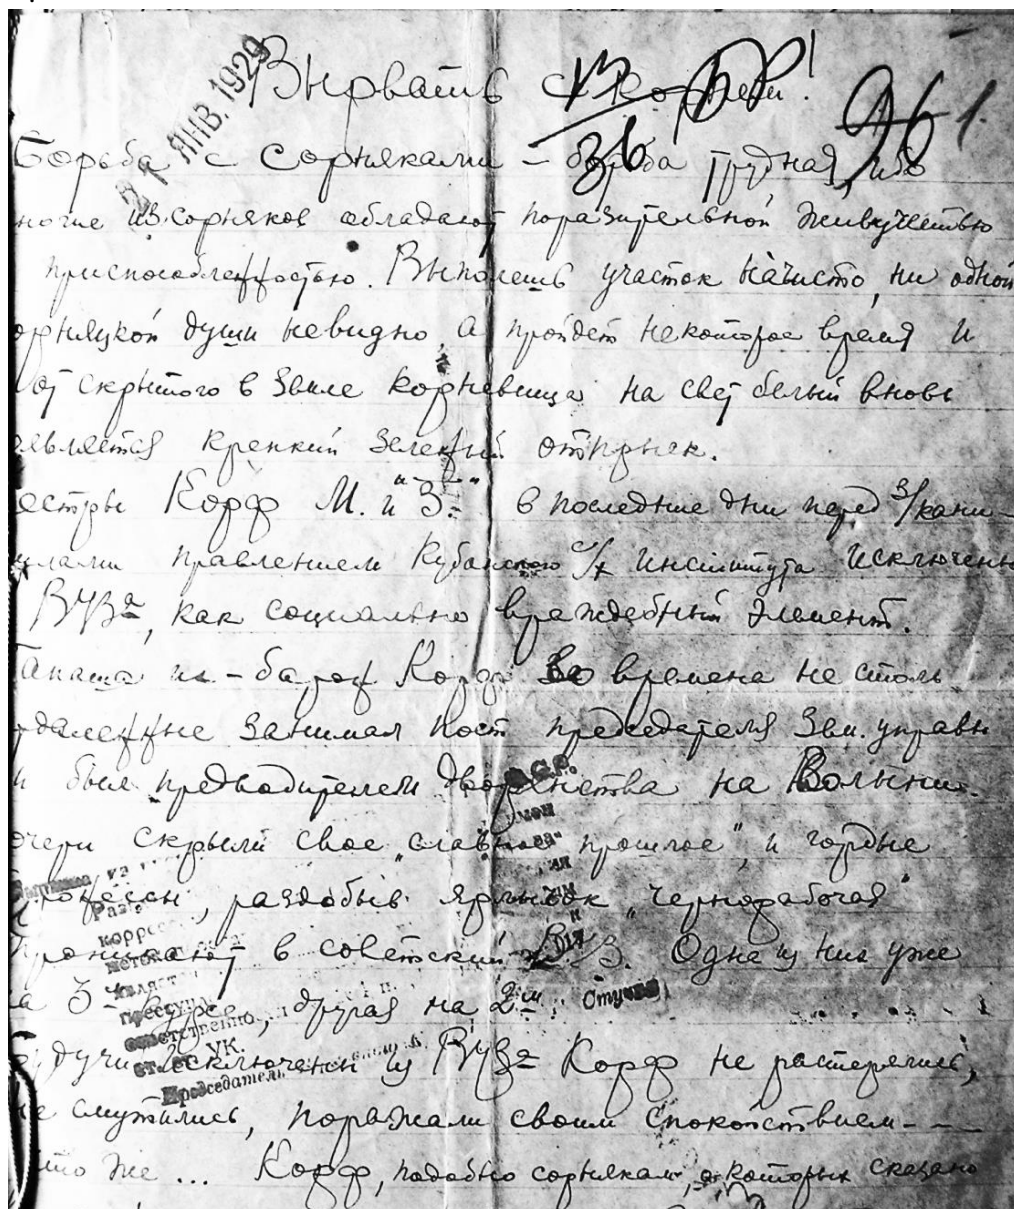 21 ЯНВ. 1929
Вырвать с корнем!
13
36
96 1.
Борьба с сорняками – борьба трудная, ибо
многие из сорняков обладают поразительной живучестью
приспособленностью. Выполешь участок начисто, ни одной
сорняцкой души невидно, а пройдет некоторое время и
от скрытого в земле корневища на свет белый вновь
является крепкий зеленый отпрыск.
Сестры Корф М. и "З." в последние дни перед з/кани-
кулами правлением Кубанского с/х Института исключены
ВУЗа, как социально враждебный элемент.
Папаша их – барон Корф во времена не столь
отдаленные занимал пост председателя Зем. управы
и был предводителем дворянства на Волыни.
Дочери скрыли свое "славное прошлое", и гордые
баронессы, раздобыв ярлычок "чернорабочая"
проникают в советский ВУЗ. Одна из них уже
на 3-м курсе, другая на 2-м.
Будучи исключены из ВУЗа Корф не растерялись,
не смутились, поражали своим спокойствием – –
Что же ... Корф, подобно сорнякам, о которых сказано
Разг
корресп
является
преступл
ответственности
ст. УК.
Председатель
Стучка